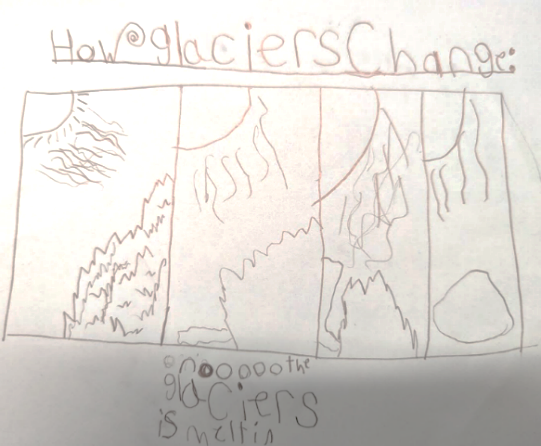 How glaciers Change:
onooooo the
glaciers
is meltin